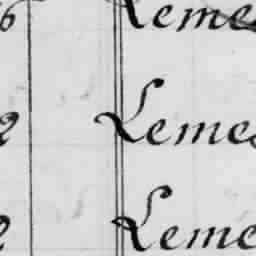 6 Leme
2 Leme
2 Leme